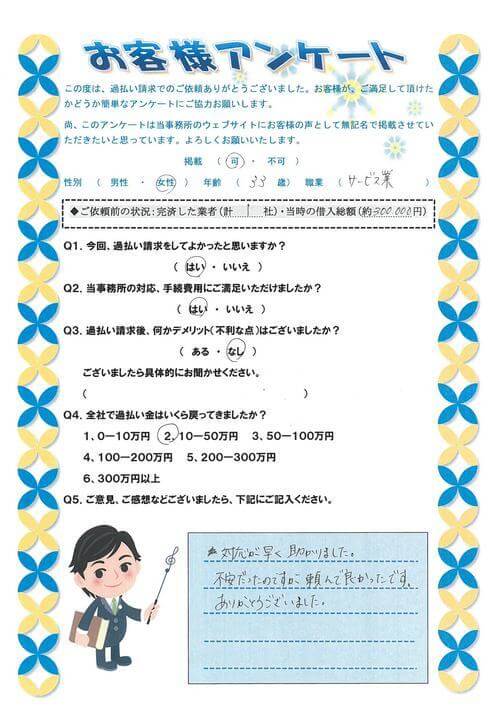 お客様アンケート
この度は、過払い請求でのご依頼ありがとうございました。お客様が、ご満足して頂けた
かどうか簡単なアンケートにご協力お願いします。
尚、このアンケートは当事務所のウェブサイトにお客様の声として無記名で掲載させてい
ただきたいと思っています。よろしくお願いいたします。
掲載 ( 可 ・ 不可 )
性別 ( 男性 ・ 女性 ) 年齢 ( 33 歳) 職業 ( サービス業 )
◆ご依頼前の状況:完済した業者(計 1 社)・当時の借入総額(約200,000円)
Q1. 今回、過払い請求をしてよかったと思いますか?
( はい ・ いいえ )
Q2. 当事務所の対応、手続費用にご満足いただけましたか?
( はい ・ いいえ )
Q3. 過払い請求後、何かデメリット(不利な点)はございましたか?
( ある ・ なし )
ございましたら具体的にお聞かせください。
( )
Q4. 全社で過払い金はいくら戻ってきましたか?
1、0ー10万円 2、10ー50万円 3、50ー100万円
4、100ー200万円 5、200ー300万円
6、300万円以上
Q5. ご意見、ご感想などございましたら、下記にご記入ください。
対応が早く助かりました。
不安だったのですが頼んで良かったです。
ありがとうございました。